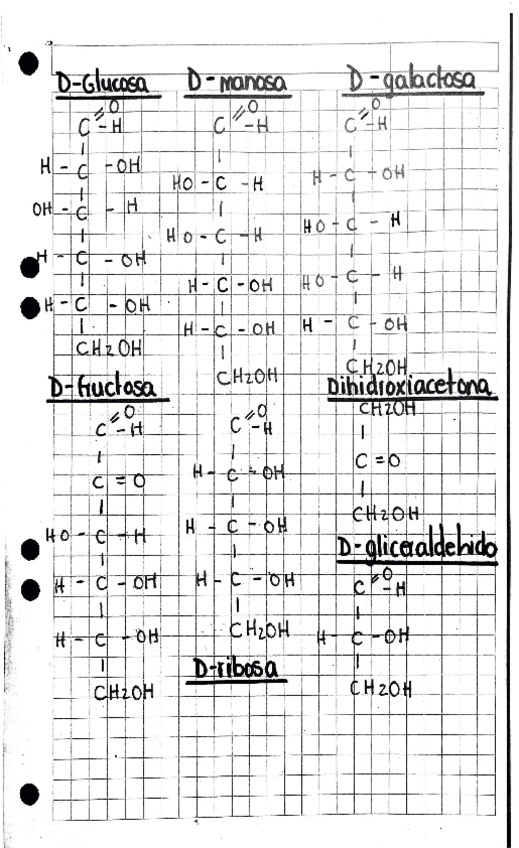 D-Glucosa D-manosa D-galactosa
C=O -H C=O -H C=O -H
H-C-OH HO-C-H H-C-OH
OH-C-H HO-C-H HO-C-H
H-C-OH H-C-OH HO-C-H
H-C-OH H-C-OH H-C-OH
CH2OH CH2OH CH2OH
D-fructosa Dihidroxiacetona
C=O -H C=O -H CH2OH
C=O H-C-OH C=O
HO-C-H H-C-OH CH2OH
D-gliceraldehido
H-C-OH H-C-OH C=O -H
H-C-OH CH2OH H-C-OH
CH2OH D-ribosa CH2OH